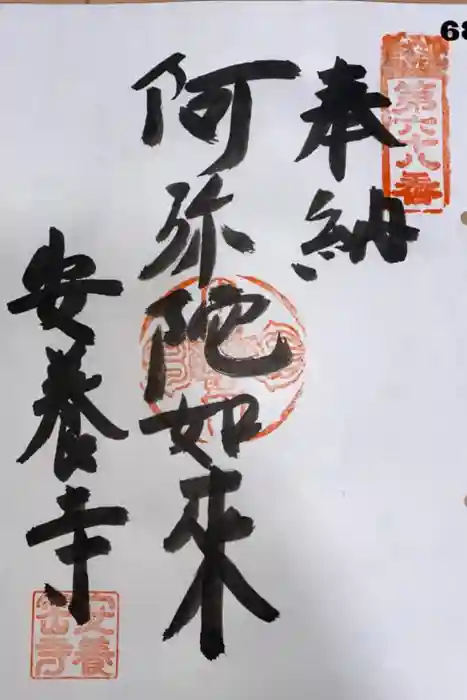 68
第六十八番
奉納
阿弥陀如来
安養寺